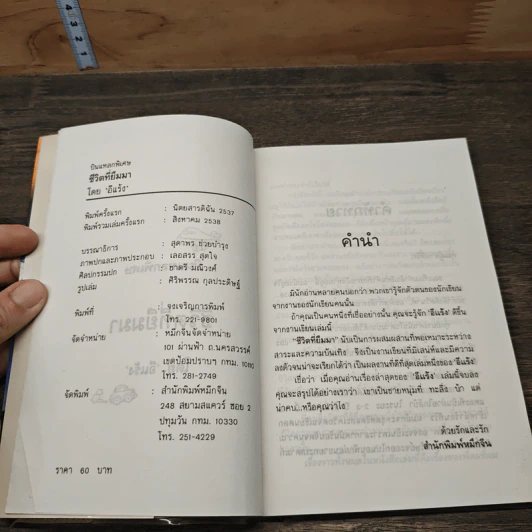 ปินแหลกพิเศษ
ชีวิตที่ยืมมา
โดย 'อีแร้ง'
พิมพ์ครั้งแรก : นิตยสารดิฉัน 2537
พิมพ์รวมเล่มครั้งแรก : สิงหาคม 2538
บรรณาธิการ : สุดาพร ช่วยบำรุง
ภาพปกและภาพประกอบ : เลอสรร สุดใจ
ศิลปกรรมปก : ชาตรี มณีวงศ์
รูปเล่ม : ศิริพรรณ กุลประดิษฐ์
พิมพ์ที่ : จูงเจริญการพิมพ์
โทร. 221-9801
จัดจำหน่าย : หมึกจีนจัดจำหน่าย
101 ผ่านฟ้า ถ.นครสวรรค์
เขตป้อมปราบฯ กทม. 10100
โทร. 281-2749
จัดพิมพ์ : สำนักพิมพ์หมึกจีน
248 สยามสแควร์ ซอย 2
ปทุมวัน กทม. 10330
โทร. 251-4229
ราคา 60 บาท
คำนำ
มีนักอ่านหลายคนบอกว่า พวกเขารู้จักตัวตนของนักเขียน
จากงานของนักเขียนคนนั้น
ถ้าคุณเป็นคนหนึ่งที่เชื่ออย่างนั้น คุณจะรู้จัก 'อีแร้ง' ดีขึ้น
จากงานเขียนเล่มนี้
"ชีวิตที่ยืมมา" นับเป็นการผสมผสานที่พอเหมาะระหว่าง
สาระและความบันเทิง จึงเป็นงานเขียนที่มีเสน่ห์และมีความ
ลงตัวจนน่าจะเรียกได้ว่า เป็นผลงานที่ดีที่สุดเล่มหนึ่งของ 'อีแร้ง'
เชื่อว่า เมื่อคุณอ่านเรื่องล่าสุดของ 'อีแร้ง' เล่มนี้จบลง
คุณจะสรุปได้อย่างเราว่า เขาเป็นชายหนุ่มที่ ทะลึ่ง บ้า แต่
น่าคบ...หรือคุณว่าไง
ด้วยรักและรัก
สำนักพิมพ์หมึกจีน